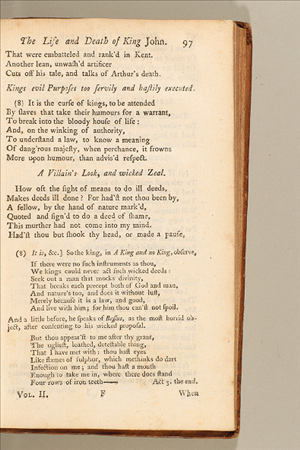 The Life and Death of King John. 97
That were embatteled and rank'd in Kent.
Another lean, unwash'd artificer
Cuts off his tale, and talks of Arthur's death.
Kings evil Purposes too ſervily and haſtily executed.
(8) It is the curſe of kings, to be attended
By ſlaves that take their humours for a warrant,
To break into the bloody houſe of life:
And, on the winking of authority,
To underſtand a law, to know a meaning
Of dang'rous majeſty, when perchance, it frowns
More upon humour, than advis'd reſpect.
A Villain's Look, and wicked Zeal.
How oft the ſight of means to do ill deeds,
Makes deeds ill done? For had'ſt not thou been by,
A fellow, by the hand of nature mark'd,
Quoted and ſign'd to do a deed of ſhame,
This murther had not come into my mind.
Had'ſt thou but ſhook thy head, or made a pauſe,
(8) It is, &c.] So the king, in A King and no King, obſerves,
If there were no ſuch inſtruments as thou,
We kings could never act ſuch wicked deeds:
Seek out a man that mocks divinity,
That breaks each precept both of God and man,
And nature's too, and does it without luſt,
Merely becauſe it is a law, and good,
And live with him; for him thou can'ſt not ſpoil.
And a little before, he ſpeaks of Beſſus, as the moſt horrid ob-
ject, after conſenting to his wicked propoſal.
But thou appear'ſt to me after thy grant,
The uglieſt, loathed, deteſtable thing,
That I have met with: thou haſt eyes
Like flames of ſulphur, which methinks do dart
Infection on me; and thou haſt a mouth
Enough to take me in, where there does ſtand
Four rows of iron teeth—— Act 3. the end.
VOL. II. F When